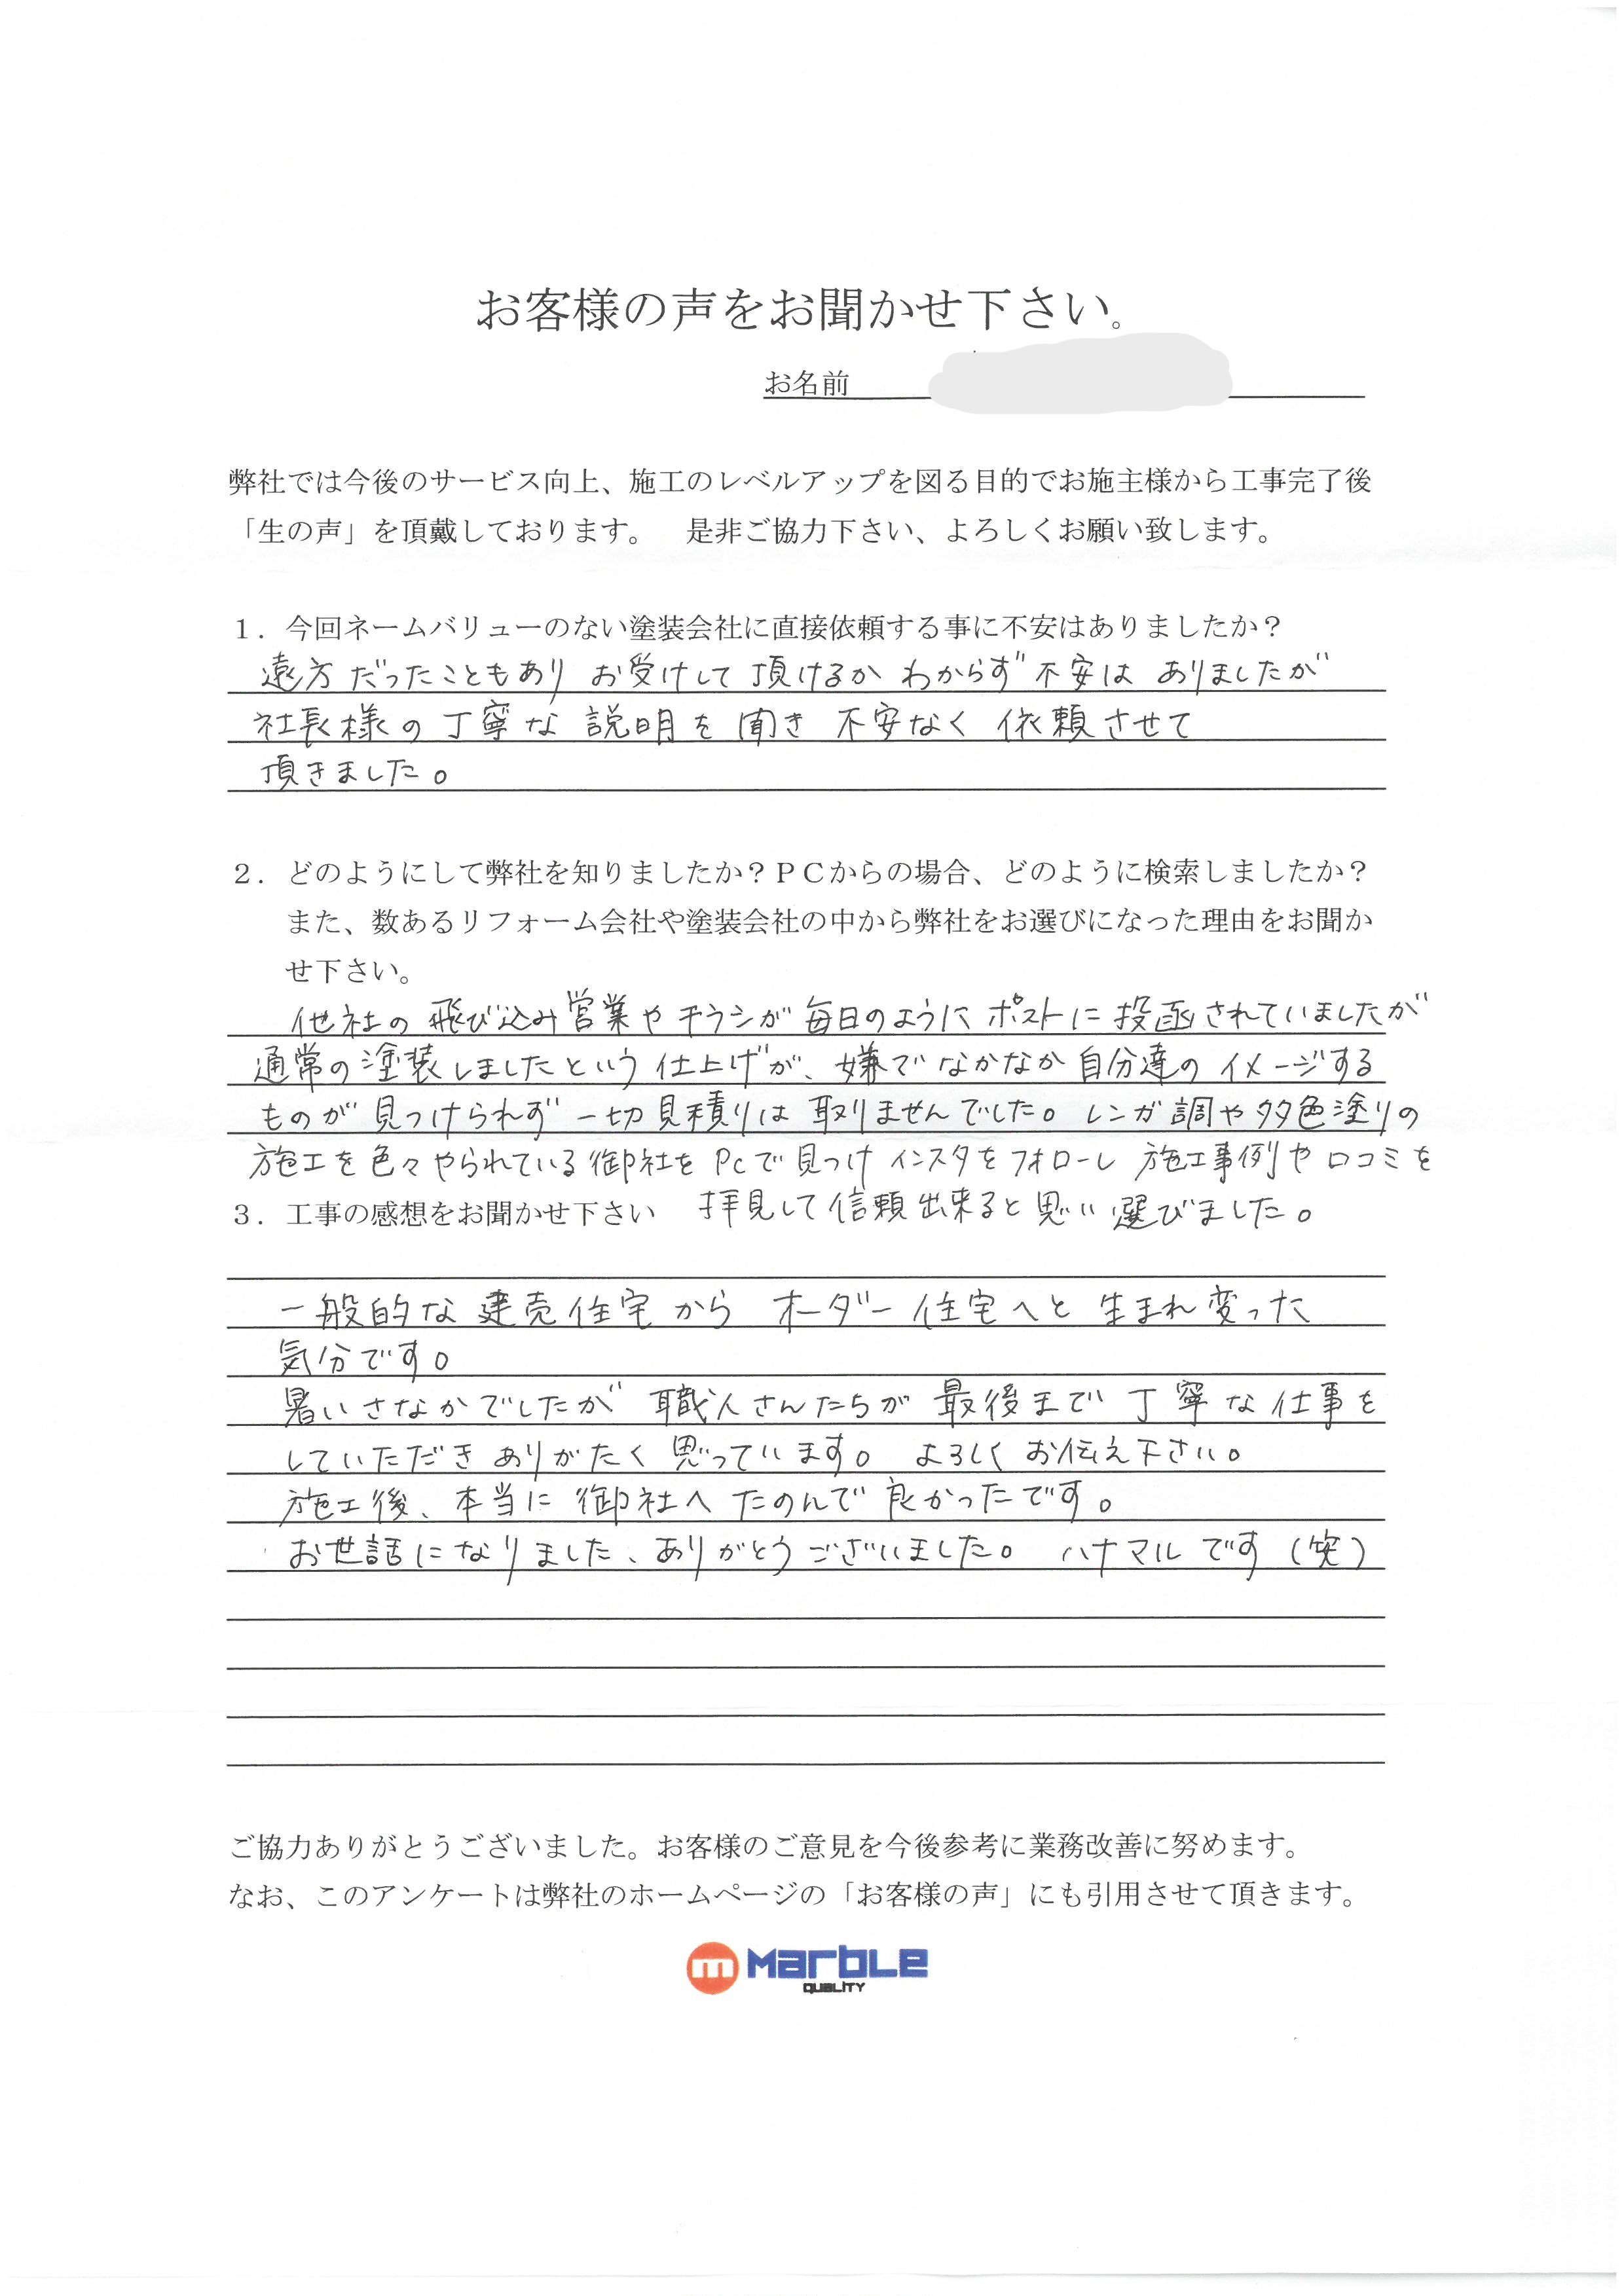 お客様の声をお聞かせ下さい。
お名前
弊社では今後のサービス向上、施工のレベルアップを図る目的でお施主様から工事完了後
「生の声」を頂戴しております。　是非ご協力下さい、よろしくお願い致します。
１．今回ネームバリューのない塗装会社に直接依頼する事に不安はありましたか？
遠方だったこともあり お受けして頂けるか わからず 不安は ありましたが
社長様の 丁寧な 説明を 聞き 不安なく 依頼させて
頂きました。
２．どのようにして弊社を知りましたか？ＰＣからの場合、どのように検索しましたか？
また、数あるリフォーム会社や塗装会社の中から弊社をお選びになった理由をお聞か
せ下さい。
他社の 飛び込み営業や チラシが 毎日のように ポストに 投函されていましたが
通常の塗装しましたという 仕上げが、嫌で なかなか 自分達の イメージする
ものが 見つけられず 一切見積りは 取りませんでした。レンガ調や多色塗りの
施工を色々やられている御社をPCで見つけ インスタをフォローし 施工事例や口コミを
拝見して信頼出来ると思い選びました。
３．工事の感想をお聞かせ下さい
一般的な 建売住宅から オーダー住宅へと 生まれ変った
気分です。
暑いさなかでしたが 職人さんたちが 最後まで 丁寧な仕事を
していただき ありがたく 思っています。よろしく お伝え下さい。
施工後、本当に 御社へ たのんで 良かったです。
お世話になりました、ありがとうございました。ハナマルです（笑）
ご協力ありがとうございました。お客様のご意見を今後参考に業務改善に努めます。
なお、このアンケートは弊社のホームページの「お客様の声」にも引用させて頂きます。
m Marble
QUALITY